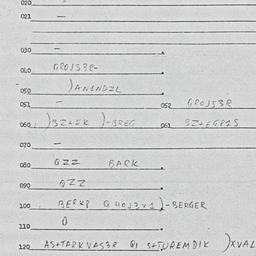 020
021 —
030 —
040 GROJS3R-
050 )ANENDZL
051 — 052 GROJS3R
060 )BZ+EK )-BREG 061 3Z+EGPES
070 —
080 GZZ BARK
090 GZZ
100 BERKP G HOJ3X1 )-BERGER
110 0
120 AS+TARKVAS3R QI S+TUREMDIK )XVAL